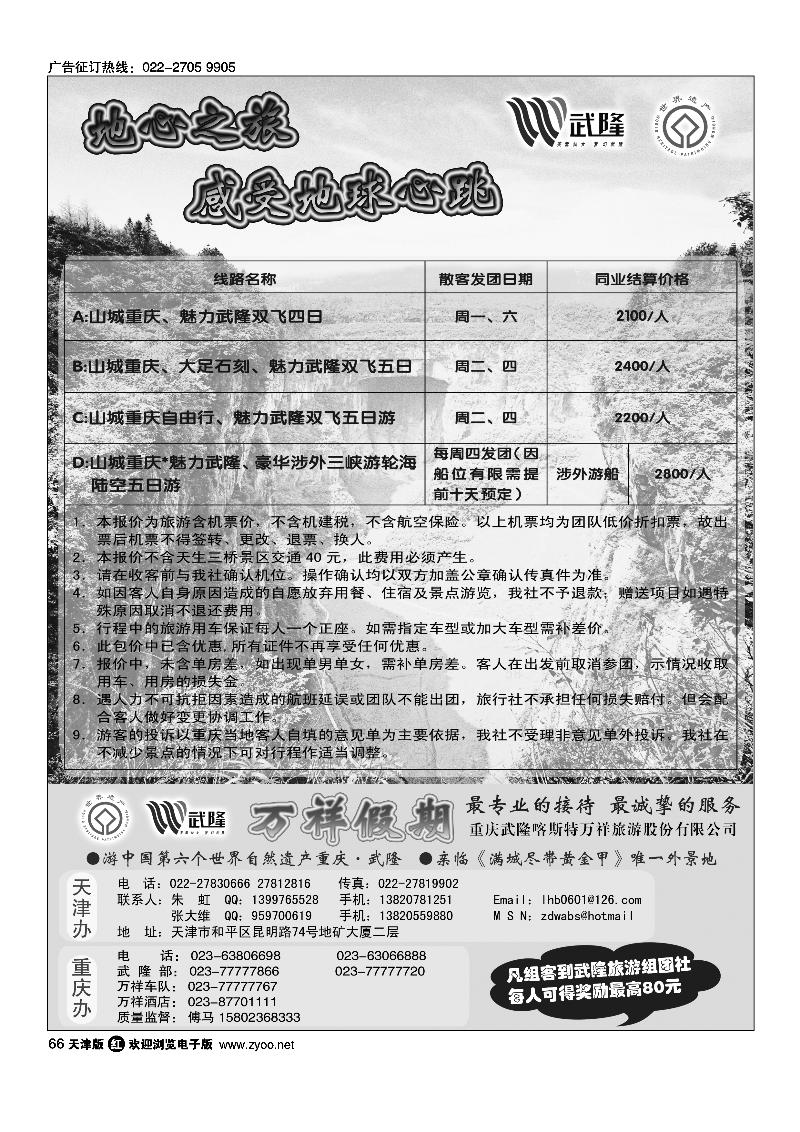 广告征订热线：022-2705 9905
地心之旅
武隆
世界遗产
感受地球心跳
线路名称 散客发团日期 同业结算价格
A:山城重庆、魅力武隆双飞四日 周一、六 2100/人
B:山城重庆、大足石刻、魅力武隆双飞五日 周二、四 2400/人
C:山城重庆自由行、魅力武隆双飞五日游 周二、四 2200/人
D:山城重庆*魅力武隆、豪华涉外三峡游轮海
陆空五日游
每周四发团（因
船位有限需提
前十天预定）
涉外游船 2800/人
1．本报价为旅游含机票价，不含机建税，不含航空保险。以上机票均为团队低价折扣票，故出
票后机票不得签转、更改、退票、换人。
2．本报价不含天生三桥景区交通 40 元，此费用必须产生。
3．请在收客前与我社确认机位。操作确认均以双方加盖公章确认传真件为准。
4．如因客人自身原因造成的自愿放弃用餐、住宿及景点游览，我社不予退款；赠送项目如遇特
殊原因取消不退还费用。
5．行程中的旅游用车保证每人一个正座。如需指定车型或加大车型需补差价。
6．此包价中已含优惠,所有证件不再享受任何优惠。
7．报价中，未含单房差，如出现单男单女，需补单房差。客人在出发前取消参团，示情况收取
用车、用房的损失金。
8．遇人力不可抗拒因素造成的航班延误或团队不能出团，旅行社不承担任何损失赔付。但会配
合客人做好变更协调工作。
9．游客的投诉以重庆当地客人自填的意见单为主要依据，我社不受理非意见单外投诉。我社在
不减少景点的情况下可对行程作适当调整。
世界遗产
武隆
万祥假期
最专业的接待 最诚挚的服务
重庆武隆喀斯特万祥旅游股份有限公司
●游中国第六个世界自然遗产重庆·武隆 ●亲临《满城尽带黄金甲》唯一外景地
天津办
电 话：022-27830666 27812816 传真：022-27819902
联系人：朱 虹 QQ：1399765528 手机：13820781251 Email：lhb0601@126.com
张大维 QQ：959700619 手机：13820559880 M S N：zdwabs@hotmail
地 址：天津市和平区昆明路74号地矿大厦二层
重庆办
电 话：023-63806698 023-63066888
武 隆 部：023-77777866 023-77777720
万祥车队：023-77777767
万祥酒店：023-87701111
质量监督：傅马 15802368333
凡组客到武隆旅游组团社
每人可得奖励最高80元
66 天津版 红 欢迎浏览电子版 www.zyoo.net